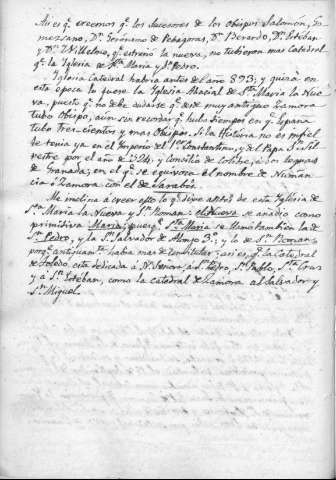 Asi es q.e creemos q.e los sucesores de los Obispos Salomón,
mezano, D.n Gerónimo de Petragoras, D.n Berardo, D.n Esteban
y D.n Wilhelmo, q.e estrenó la nueva, no tubieron mas Catedral
q.e la Iglesia de S.ta Maria y S.n Pedro.
Iglesia Catedral habria antes del año 893; y quizá en
esta época lo fuese la Iglesia Abacial de S.ta Maria la Nue-
va, puesto q.e no debe dudarse q.e desde muy antiguo Zamora
tubo Obispo, aun sin recordar q.e hubo tiempos en q.e España
tubo Trescientos y mas Obispos. Si la História no es infiel
le tenia ya en el Imperio del 1.o Constantino, y del Papa S.n Sil-
vestre por el año de 324; y Concilio de á dos leguas
de Granada; en el q.e se equivoca el nombre de Numan-
cia ó Zamora con el de
Me inclina á creer esto lo q.e dije antes de esta Iglesia de
S.ta Maria la Nueva y S.n Roman: el Nueva se añadió como
primitiva Maria; pues q.e S.ta Maria se llamó tambien la de
S.n Pedro, y la S.n Salvador de Alonso 3.o; y lo de S.n Roman
porq.e antiguam.te habia mas de un titular; asi es q.e la Catedral
de Toledo está dedicada á N.a Señora, á S.n Pedro, S.n Pablo, S.ta Cruz
y á S.n Estéban, como la Catedral de Zamora al Salvador y
S.n Miguel.